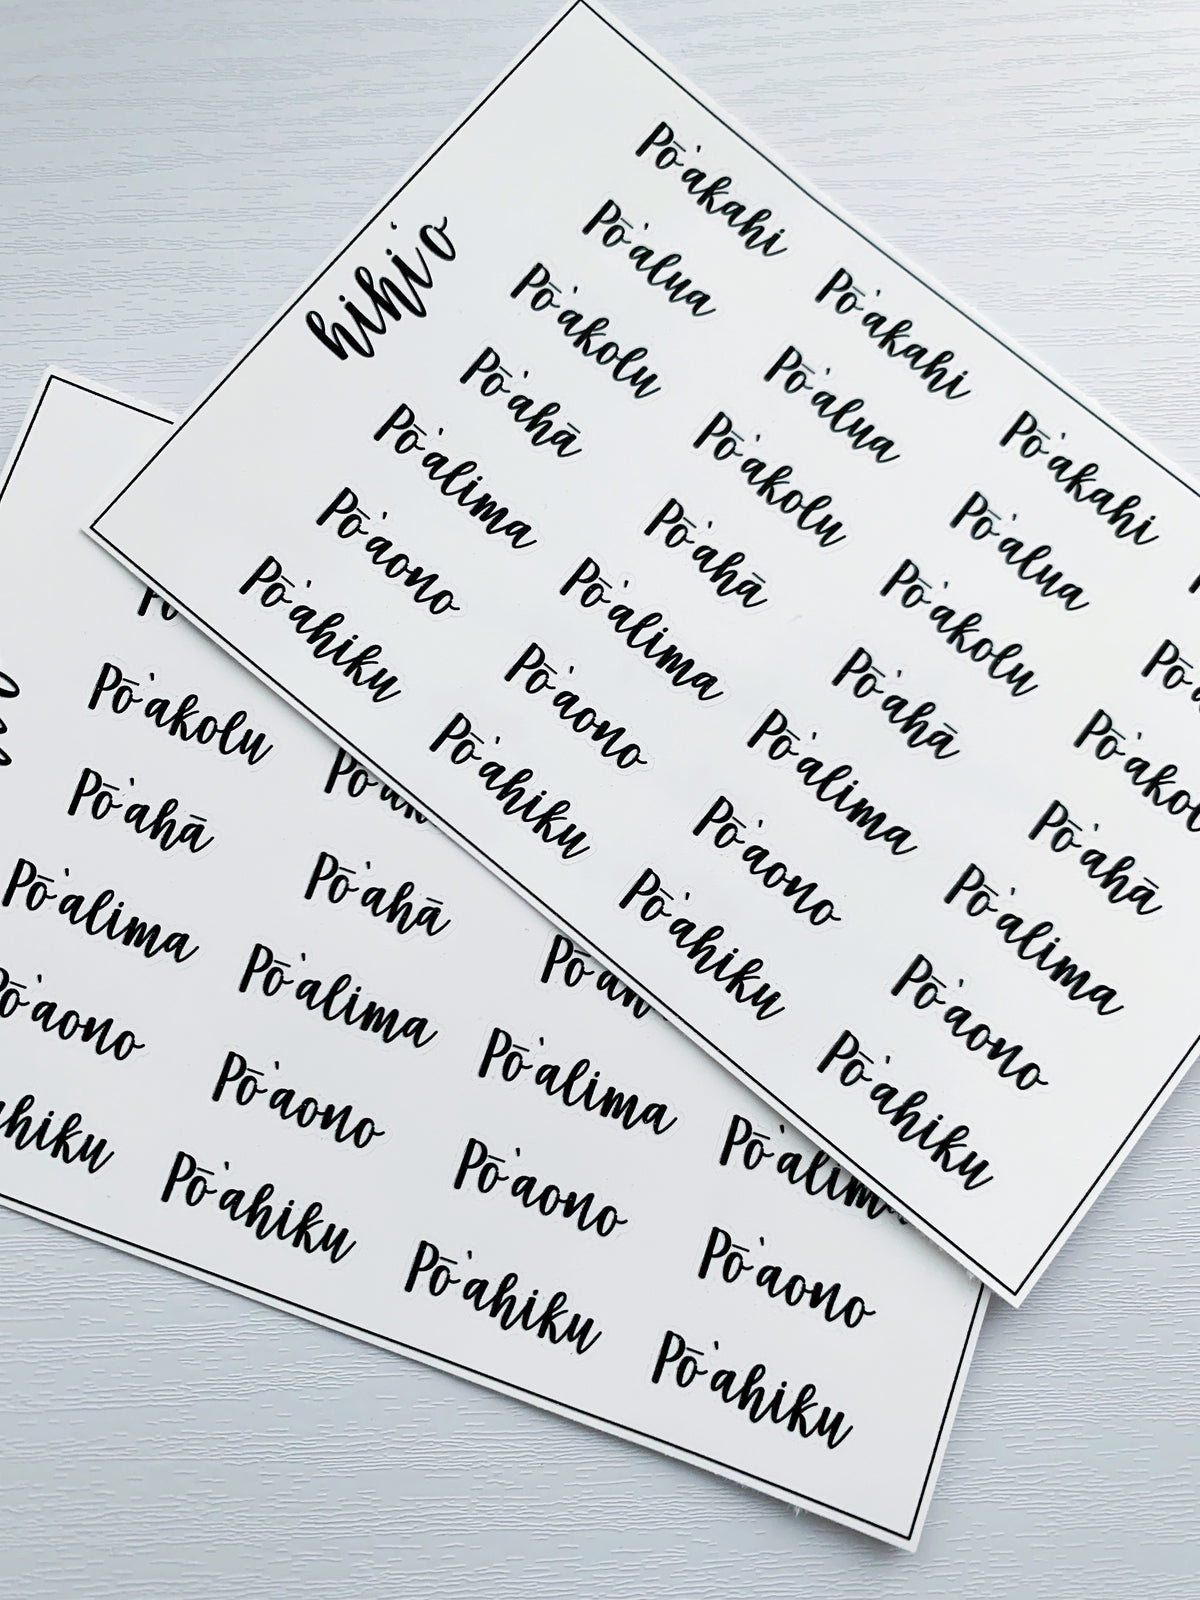 hihiʻo
Pōʻakahi Pōʻakahi Pōʻakahi
Pōʻalua Pōʻalua Pōʻalua
Pōʻakolu Pōʻakolu Pōʻakolu
Pōʻahā Pōʻahā Pōʻahā Pōʻahā
Pōʻalima Pōʻalima Pōʻalima Pōʻalima
Pōʻaono Pōʻaono Pōʻaono Pōʻaono
Pōʻahiku Pōʻahiku Pōʻahiku Pōʻahiku
Pōʻakolu
Pōʻahā Pōʻahā
Pōʻalima Pōʻalima Pōʻalima
Pōʻaono Pōʻaono Pōʻaono Pōʻaono
Pōʻahiku Pōʻahiku Pōʻahiku